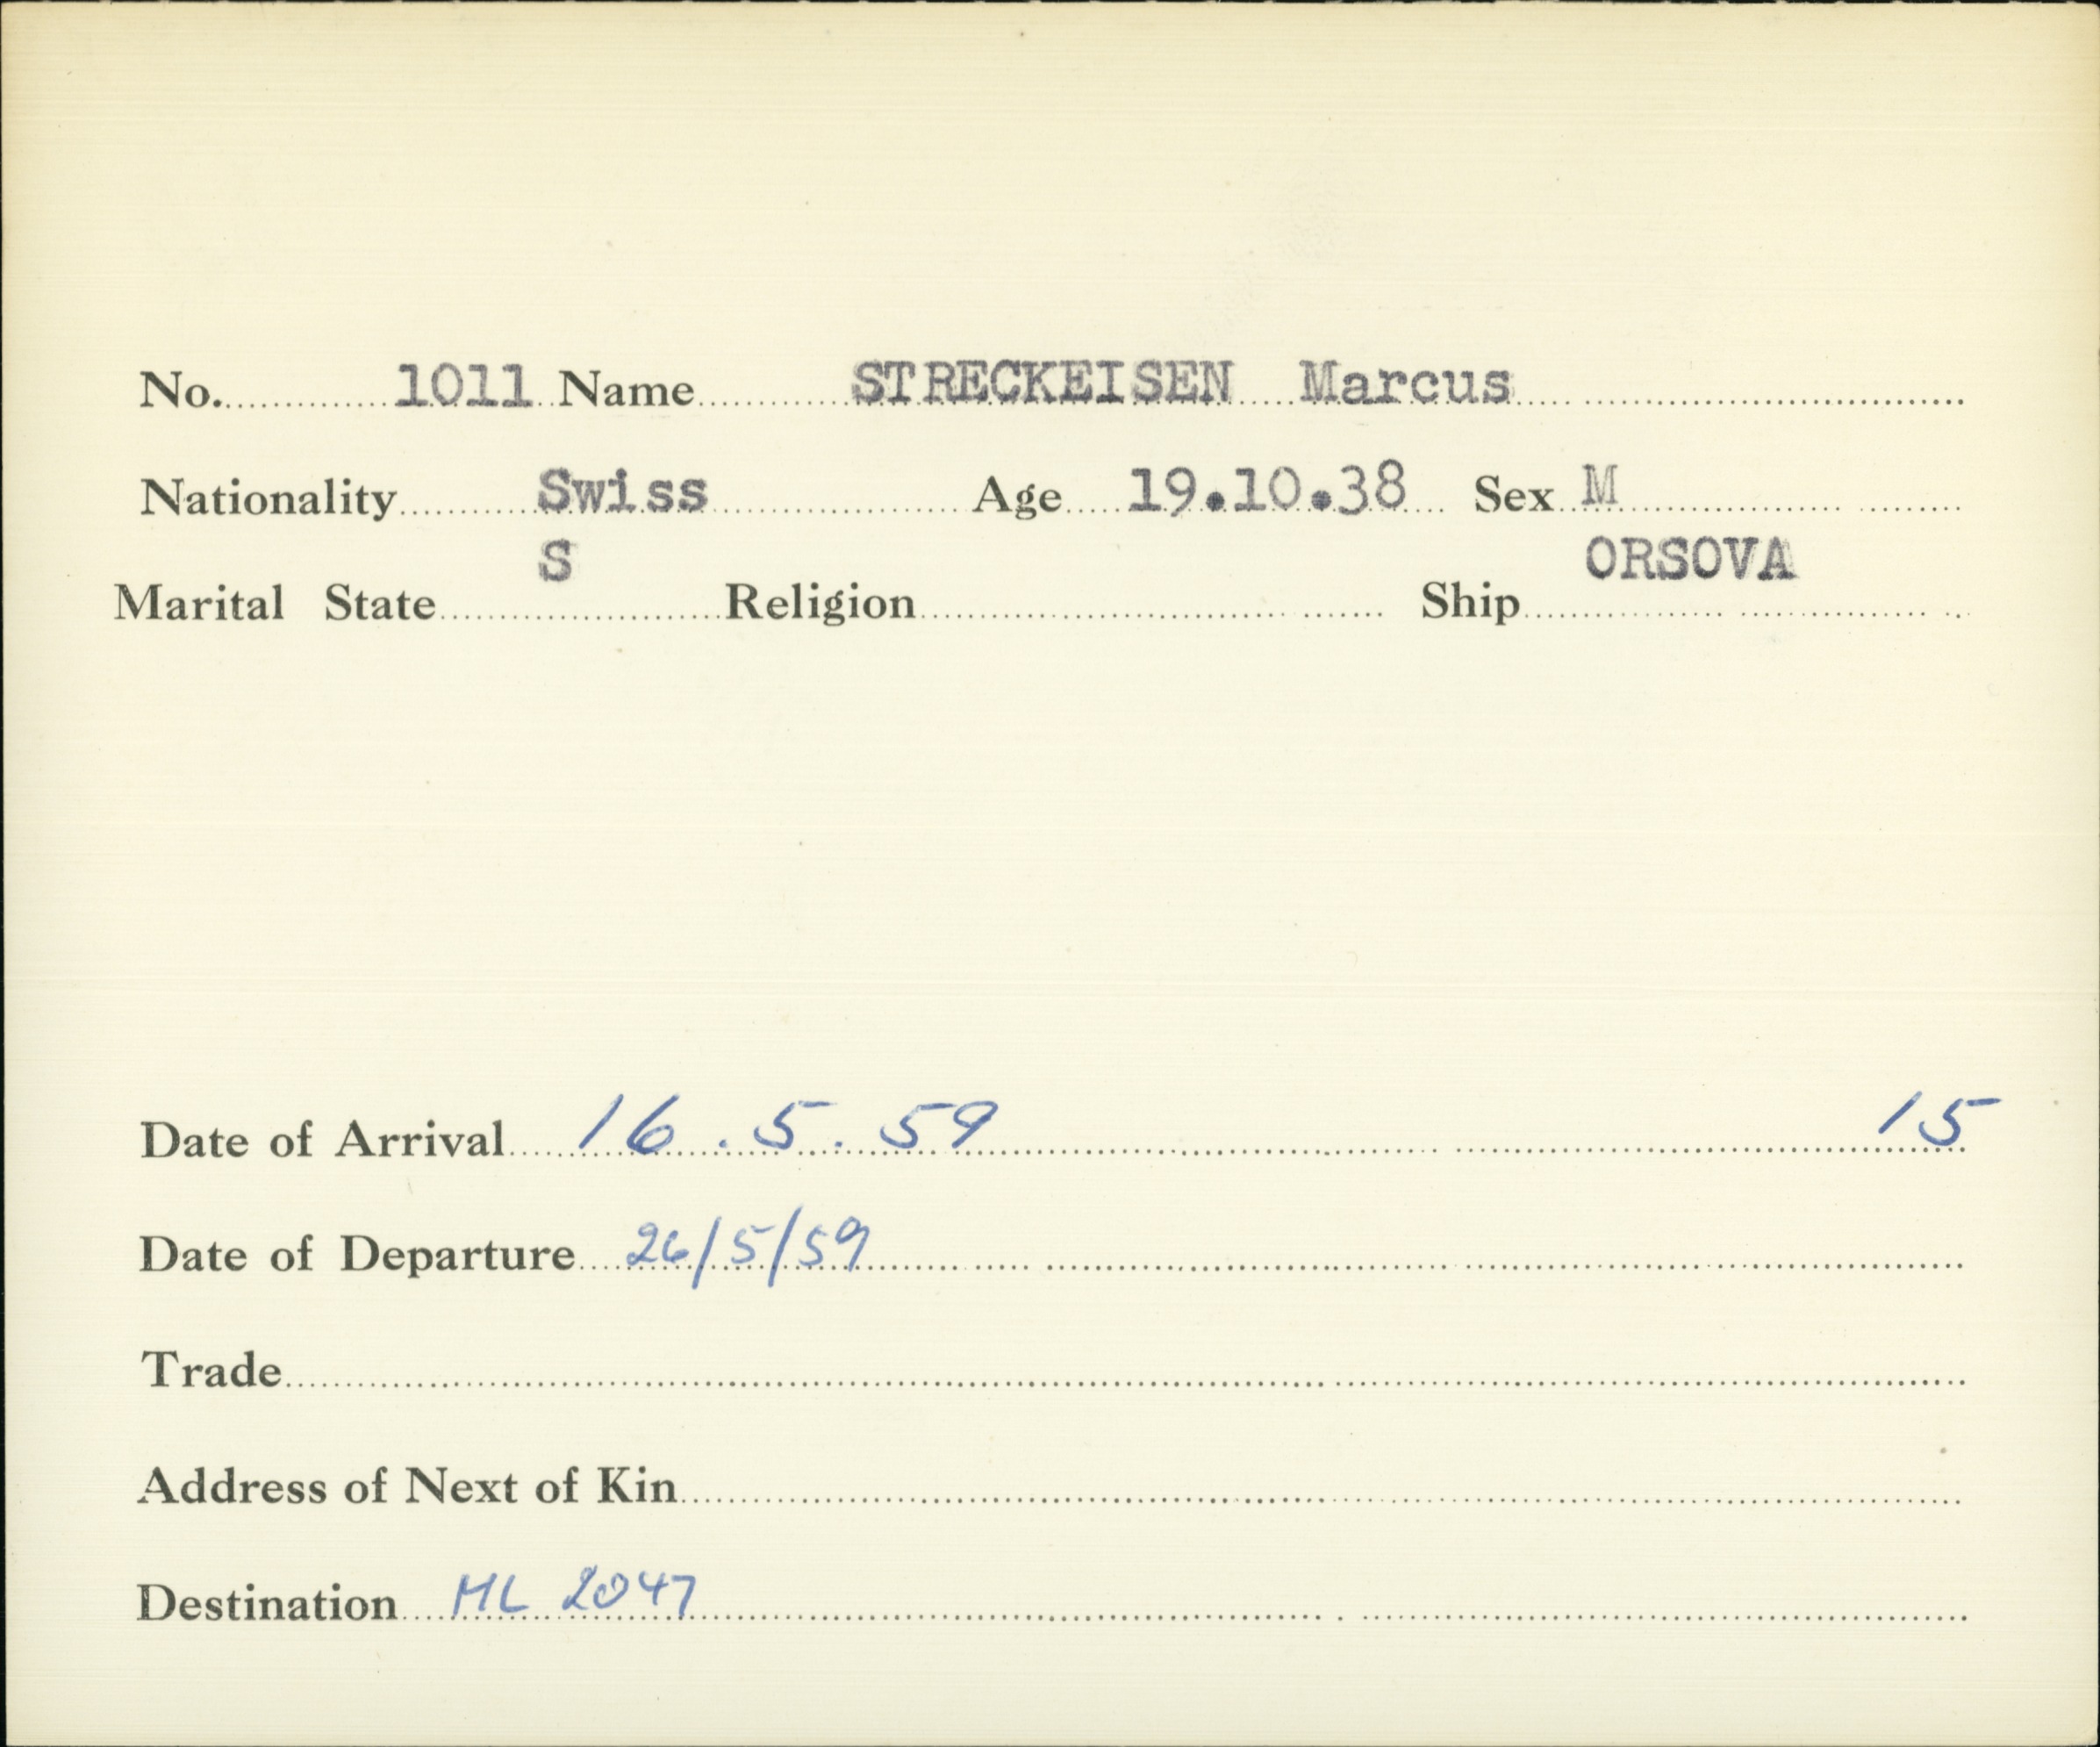 No. 1011 Name STRECKEISEN Marcus
Nationality Swiss Age 19.10.38 Sex M
Marital State S Religion Ship ORSOVA
Date of Arrival 16.5.59 15
Date of Departure 26/5/59
Trade
Address of Next of Kin
Destination ML 2047